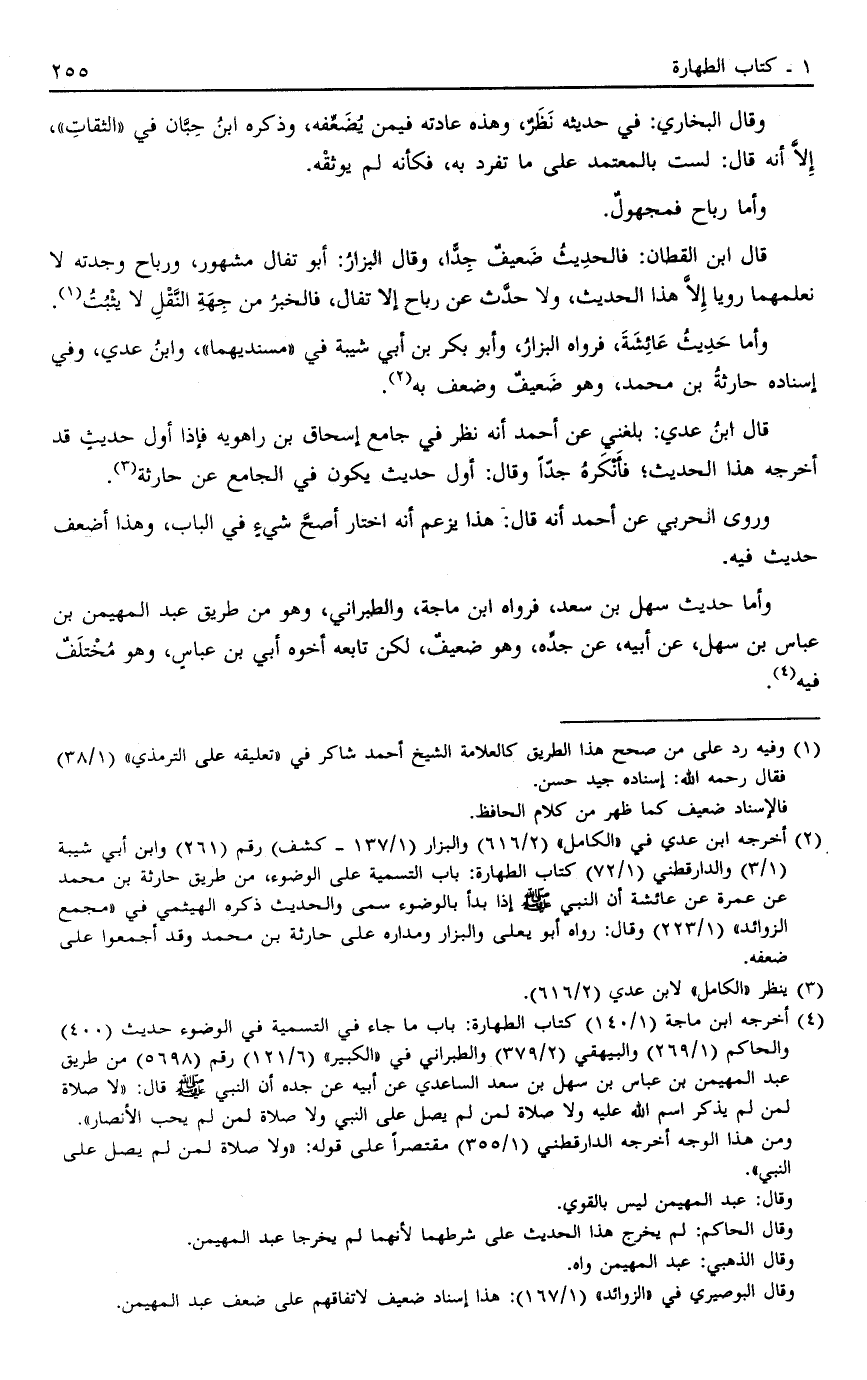 ١ ـ كتاب الطهارة ٢٥٥
وقال البخاري: في حديثه نَظَرٌ، وهذه عادته فيمن يُضَعِّفه، وذكره ابنُ حِبَّان في «الثقاتِ»،
إِلاَّ أنه قال: لست بالمعتمد على ما تفرد به، فكأنه لم يوثقْه.
وأما رباح فمجهولٌ.
قال ابن القطان: فالحدِيثُ ضَعيفٌ جِدًّا، وقال البزارُ: أبو تفال مشهور، ورباح وجدته لا
نعلمهما رويا إِلاَّ هذا الحديث، ولا حدَّث عن رباح إلا تفال، فالخبرُ من جِهَةِ النَّقْلِ لا يثْبُتُ(١).
وأما حَدِيثُ عَائِشَةَ، فرواه البزارُ، وأبو بكر بن أبي شيبة في «مسنديهما»، وابنُ عدي، وفي
إسناده حارثةُ بن محمد، وهو ضَعيفٌ وضعف به(٢).
قال ابنُ عدي: بلغني عن أحمد أنه نظر في جامع إسحاق بن راهويه فإذا أول حديثٍ قد
أخرجه هذا الحديث؛ فأَنْكَرهُ جدّاً وقال: أول حديث يكون في الجامع عن حارثة(٣).
وروى الحربي عن أحمد أنه قال: هذا يزعم أنه اختار أصحَّ شيءٍ في الباب، وهذا أضعف
حديث فيه.
وأما حديث سهل بن سعد، فرواه ابن ماجة، والطبراني، وهو من طريق عبد المهيمن بن
عباس بن سهل، عن أبيه، عن جدِّه، وهو ضعيفٌ، لكن تابعه أخوه أبي بن عباسٍ، وهو مُخْتلَفٌ
فيه(٤).
(١) وفيه رد على من صحح هذا الطريق كالعلامة الشيخ أحمد شاكر في «تعليقه على الترمذي» (٣٨/١)
فقال رحمه الله: إسناده جيد حسن.
فالإسناد ضعيف كما ظهر من كلام الحافظ.
(٢) أخرجه ابن عدي في «الكامل» (٦١٦/٢) والبزار (١٣٧/١ ـ كشف) رقم (٢٦١) وابن أبي شيبة
(٣/١) والدارقطني (٧٢/١) كتاب الطهارة: باب التسمية على الوضوء، من طريق حارثة بن محمد
عن عمرة عن عائشة أن النبي ﷺ إذا بدأ بالوضوء سمى والحديث ذكره الهيثمي في «مجمع
الزوائد» (٢٢٣/١) وقال: رواه أبو يعلى والبزار ومداره على حارثة بن محمد وقد أجمعوا على
ضعفه.
(٣) ينظر «الكامل» لابن عدي (٦١٦/٢).
(٤) أخرجه ابن ماجة (١٤٠/١) كتاب الطهارة: باب ما جاء في التسمية في الوضوء حديث (٤٠٠)
والحاكم (٢٦٩/١) والبيهقي (٣٧٩/٢) والطبراني في «الكبير» (١٢١/٦) رقم (٥٦٩٨) من طريق
عبد المهيمن بن عباس بن سهل بن سعد الساعدي عن أبيه عن جده أن النبي ﷺ قال: «لا صلاة
لمن لم يذكر اسم الله عليه ولا صلاة لمن لم يصل على النبي ولا صلاة لمن لم يحب الأنصار».
ومن هذا الوجه أخرجه الدارقطني (٣٥٥/١) مقتصراً على قوله: «ولا صلاة لمن لم يصل على
النبي».
وقال: عبد المهيمن ليس بالقوي.
وقال الحاكم: لم يخرج هذا الحديث على شرطهما لأنهما لم يخرجا عبد المهيمن.
وقال الذهبي: عبد المهيمن واه.
وقال البوصيري في «الزوائد» (١٦٧/١): هذا إسناد ضعيف لاتفاقهم على ضعف عبد المهيمن.